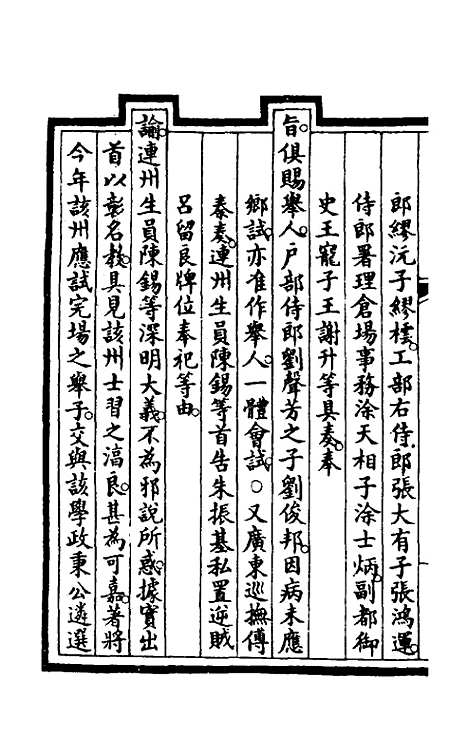 郎繆沅子繆橒。工部右侍郎張大有子張鴻運。
侍郎署理倉場事務涂天相子涂士炳。副都御
史王寵子王謝升等具奏。奉
旨。俱賜舉人。戶部侍郎劉聲芳之子劉俊邦。因病未應
鄉試。亦准作舉人。一體會試。○又廣東巡撫傅
泰奏。連州生員陳錫等首告朱振基私置逆賊
呂留良牌位奉祀等由。
諭。連州生員陳錫等深明大義。不為邪說所惑。據實出
首。以彰名教。具見該州士習之淳良。甚為可嘉。著將
今年該州應試完場之舉子。交與該學政秉公遴選